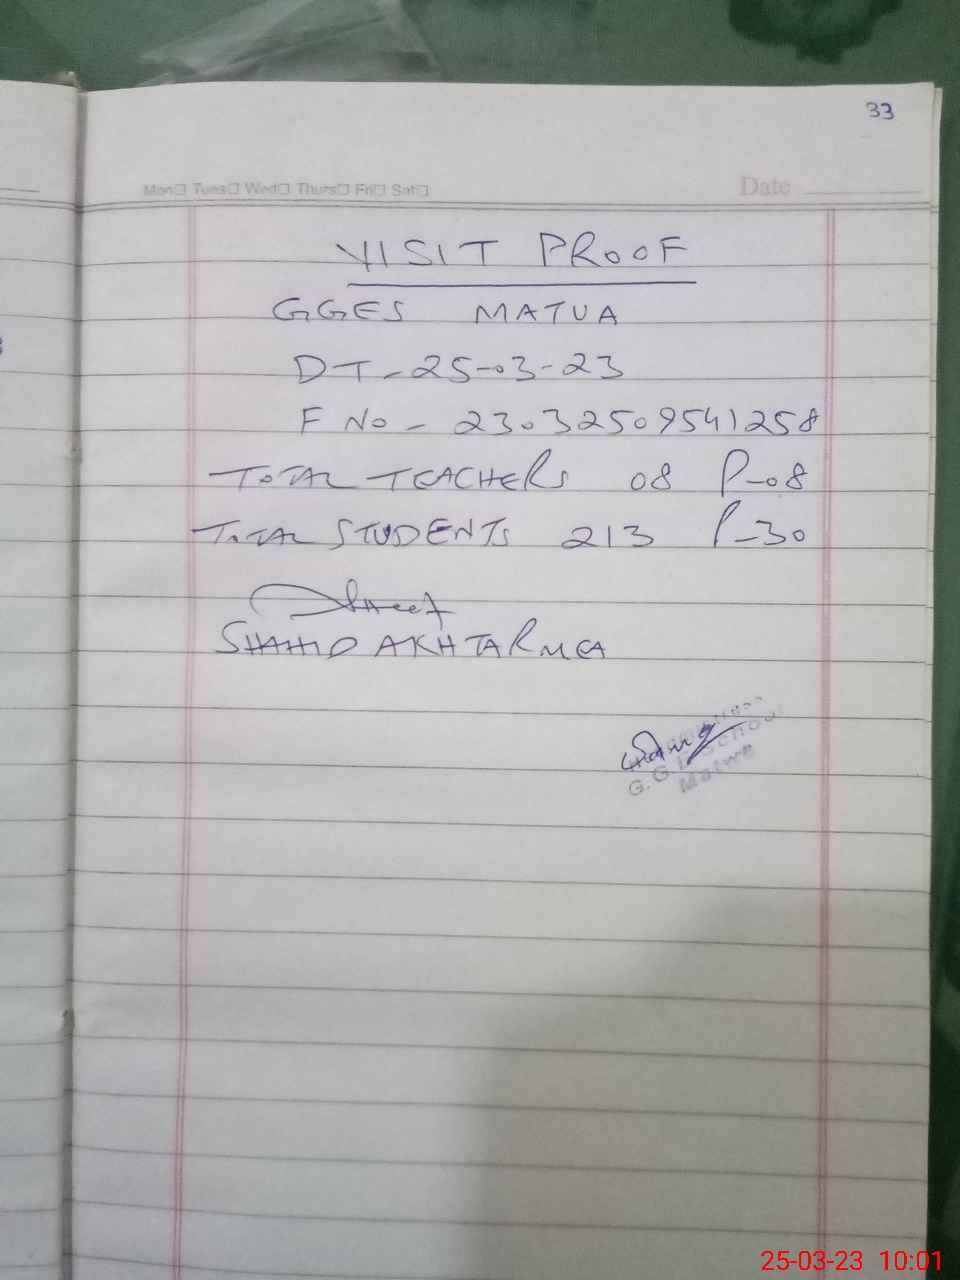 33
Mon Tues Wed Thurs Fri Sat Date
VISIT PROOF
GGES MATUA
DT-25-03-23
F No - 23032509541258
TOTAL TEACHERS 08 P-08
TOTAL STUDENTS 213 P-30
SHAHID AKHTAR MEA
G.G.E School
Matwa
25-03-23 10:01